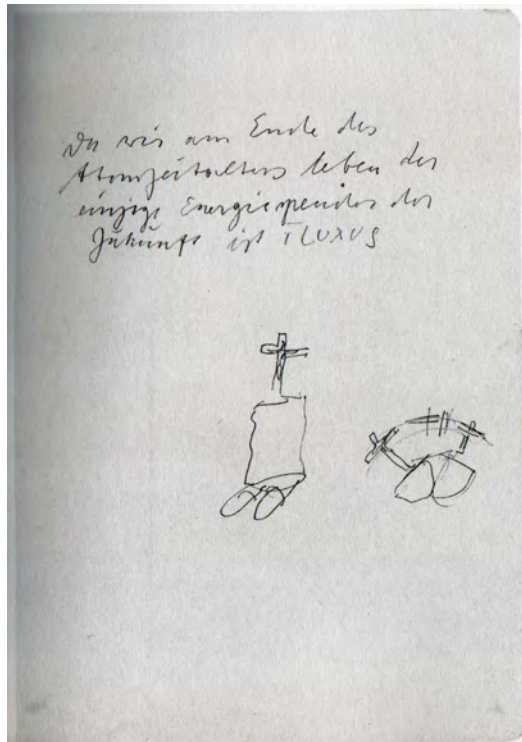 Da wir am Ende des
Atomzeitalters leben der
einzige Energiespender der
Zukunft ist FLUXUS